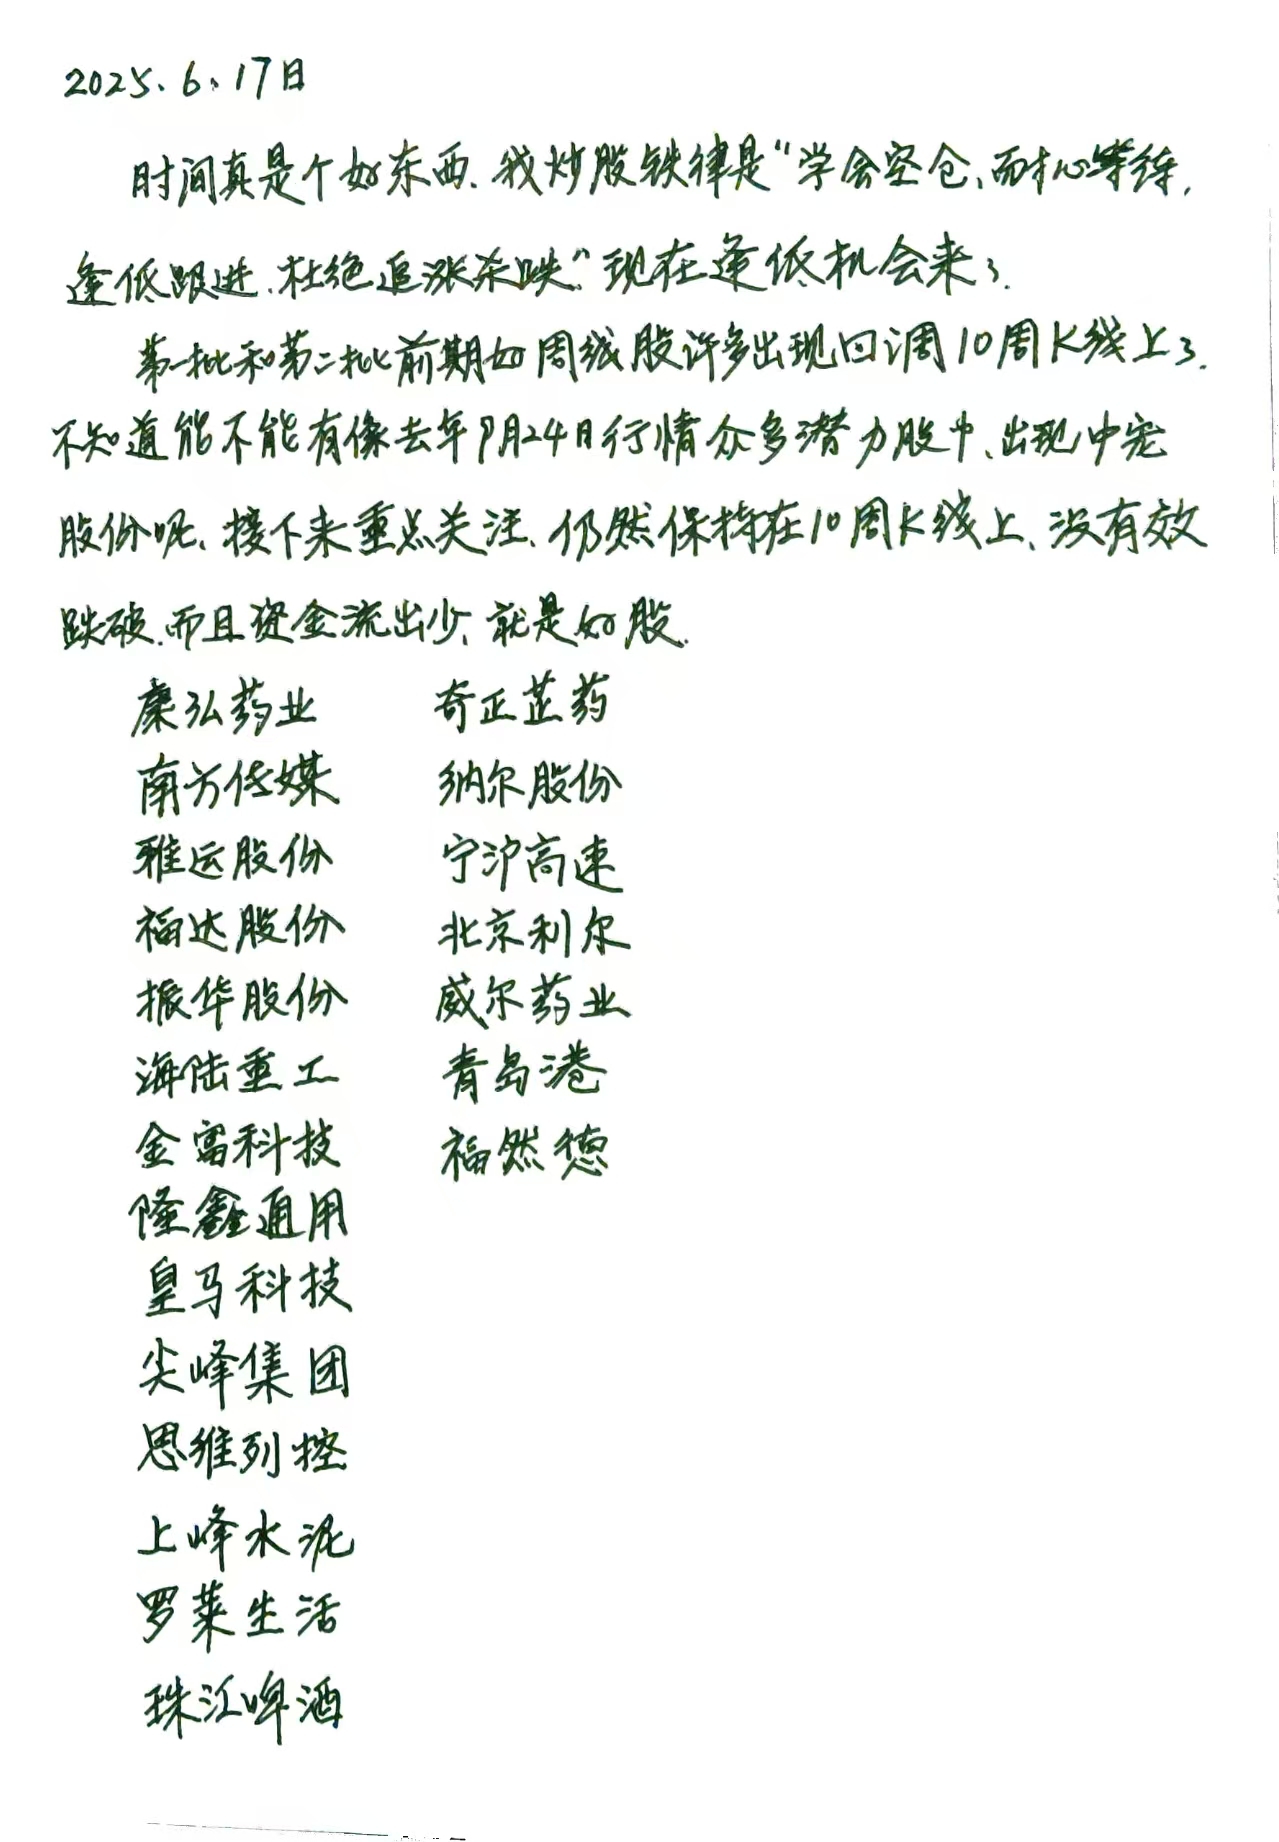 2025、6、17日
时间真是个好东西、我炒股铁律是“学会空仓、耐心等待,
逢低跟进、杜绝追涨杀跌”现在逢低机会来了.
第一批和第二批前期好周线股许多出现回调10周K线上了.
不知道能不能有像去年9月24日行情众多潜力股中、出现中宠
股份呢、接下来重点关注、仍然保持在10周K线上、没有效
跌破、而且资金流出少、就是好股.
康弘药业 奇正芷药
南方传媒 纳尔股份
雅运股份 宁沪高速
福达股份 北京利尔
振华股份 威尔药业
海陆重工 青岛港
金富科技 福然德
隆鑫通用
皇马科技
尖峰集团
思维列控
上峰水泥
罗莱生活
珠江啤酒